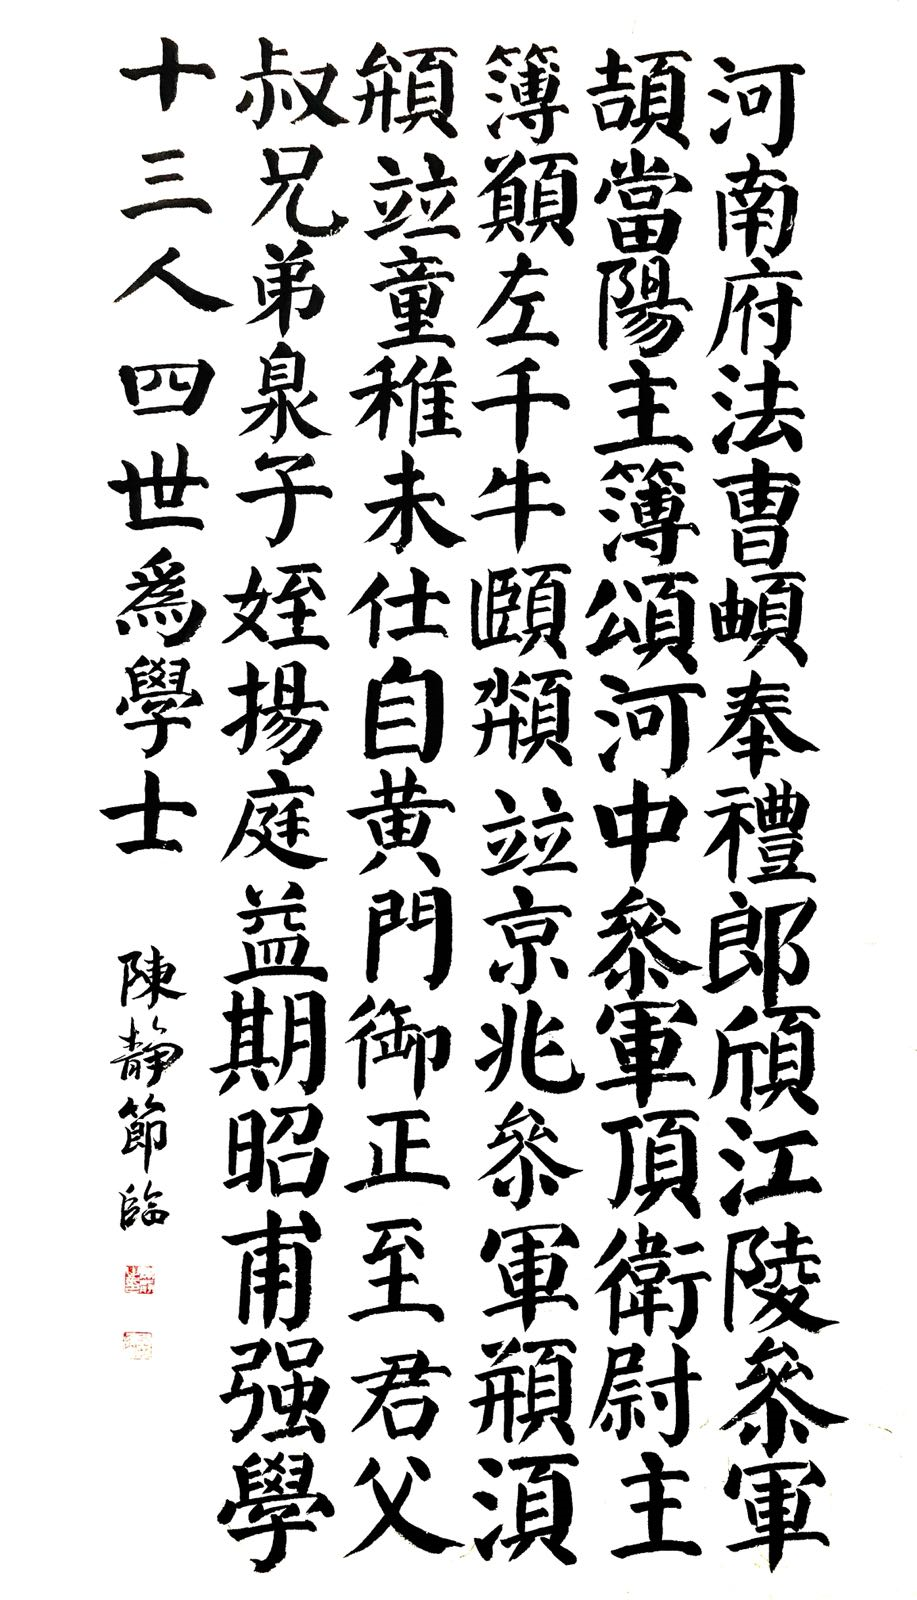 河南府法曹頔奉禮郎頎江陵參軍
頡當陽主簿頌河中參軍頂衛尉主
簿願左千牛頤竝京兆參軍湏
頩竝童稚未仕自黃門御正至君父
叔兄弟泉子姪揚庭益期昭甫强學
十三人四世爲學士
陳靜節臨